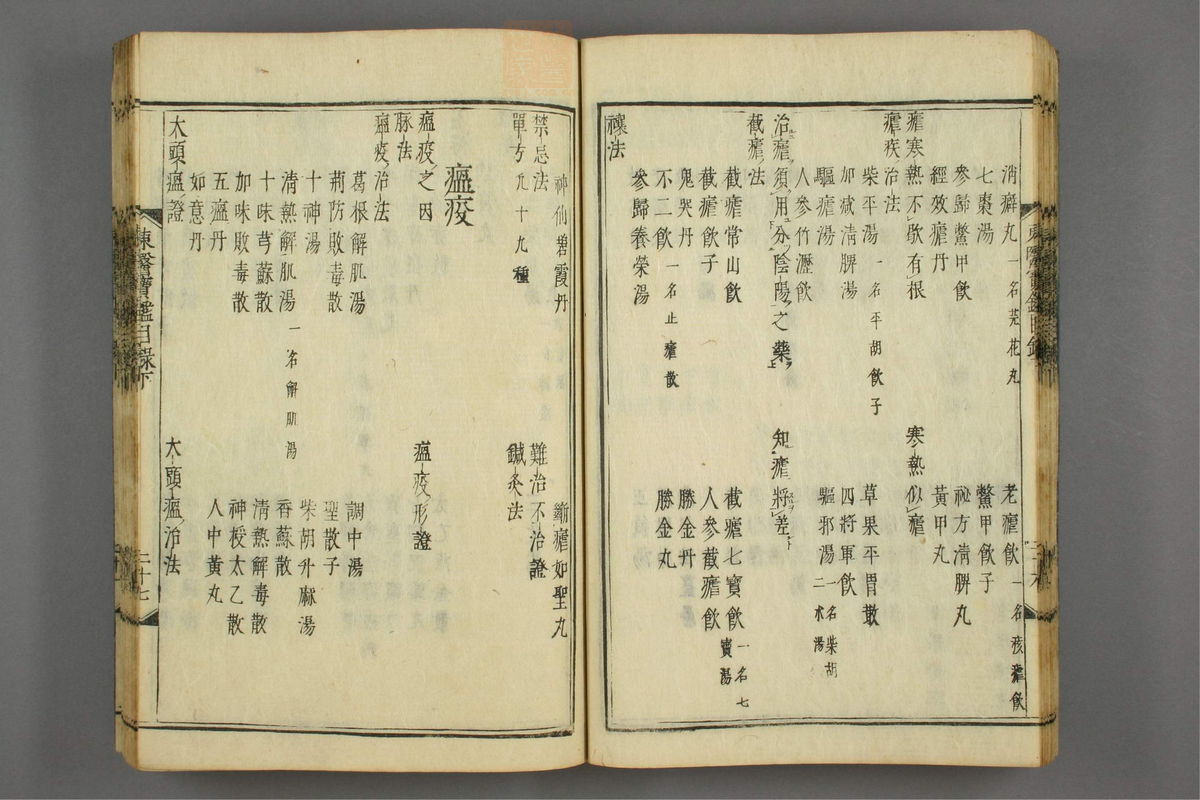 消癖丸一名芫花丸
老瘧飲一名痎瘧飲
七棗湯
鱉甲飲子
參歸鱉甲飲
祕方清脾丸
經效瘧丹
黃甲丸
瘧寒熱不歇有根
寒熱似瘧
瘧疾治法
柴平湯一名平胡飲子
草果平胃散
加減清脾湯
四將軍飲
驅瘧湯
驅邪湯一名柴胡二朮湯
人參竹瀝飲
治瘧須用分陰陽之藥
知瘧將差
截瘧法
截瘧常山飲
截瘧七寶飲一名七寶湯
截瘧飲子
人參截瘧飲
鬼哭丹
勝金丹
不二飲一名止瘧散
勝金丸
參歸養榮湯
禳法
神仙碧霞丹
斷瘧如聖丸
禁忌法
難治不治證
單方凡十九種
鍼灸法
瘟疫
瘟疫之因
瘟疫形證
脉法
瘟疫治法
葛根解肌湯
調中湯
荊防敗毒散
聖散子
十神湯
柴胡升麻湯
清熱解肌湯一名解肌湯
香蘇散
十味芎蘇散
清熱解毒散
加味敗毒散
神授太乙散
五瘟丹
人中黃丸
如意丹
大頭瘟證
大頭瘟治法
東醫寶鑑目錄下
二十七